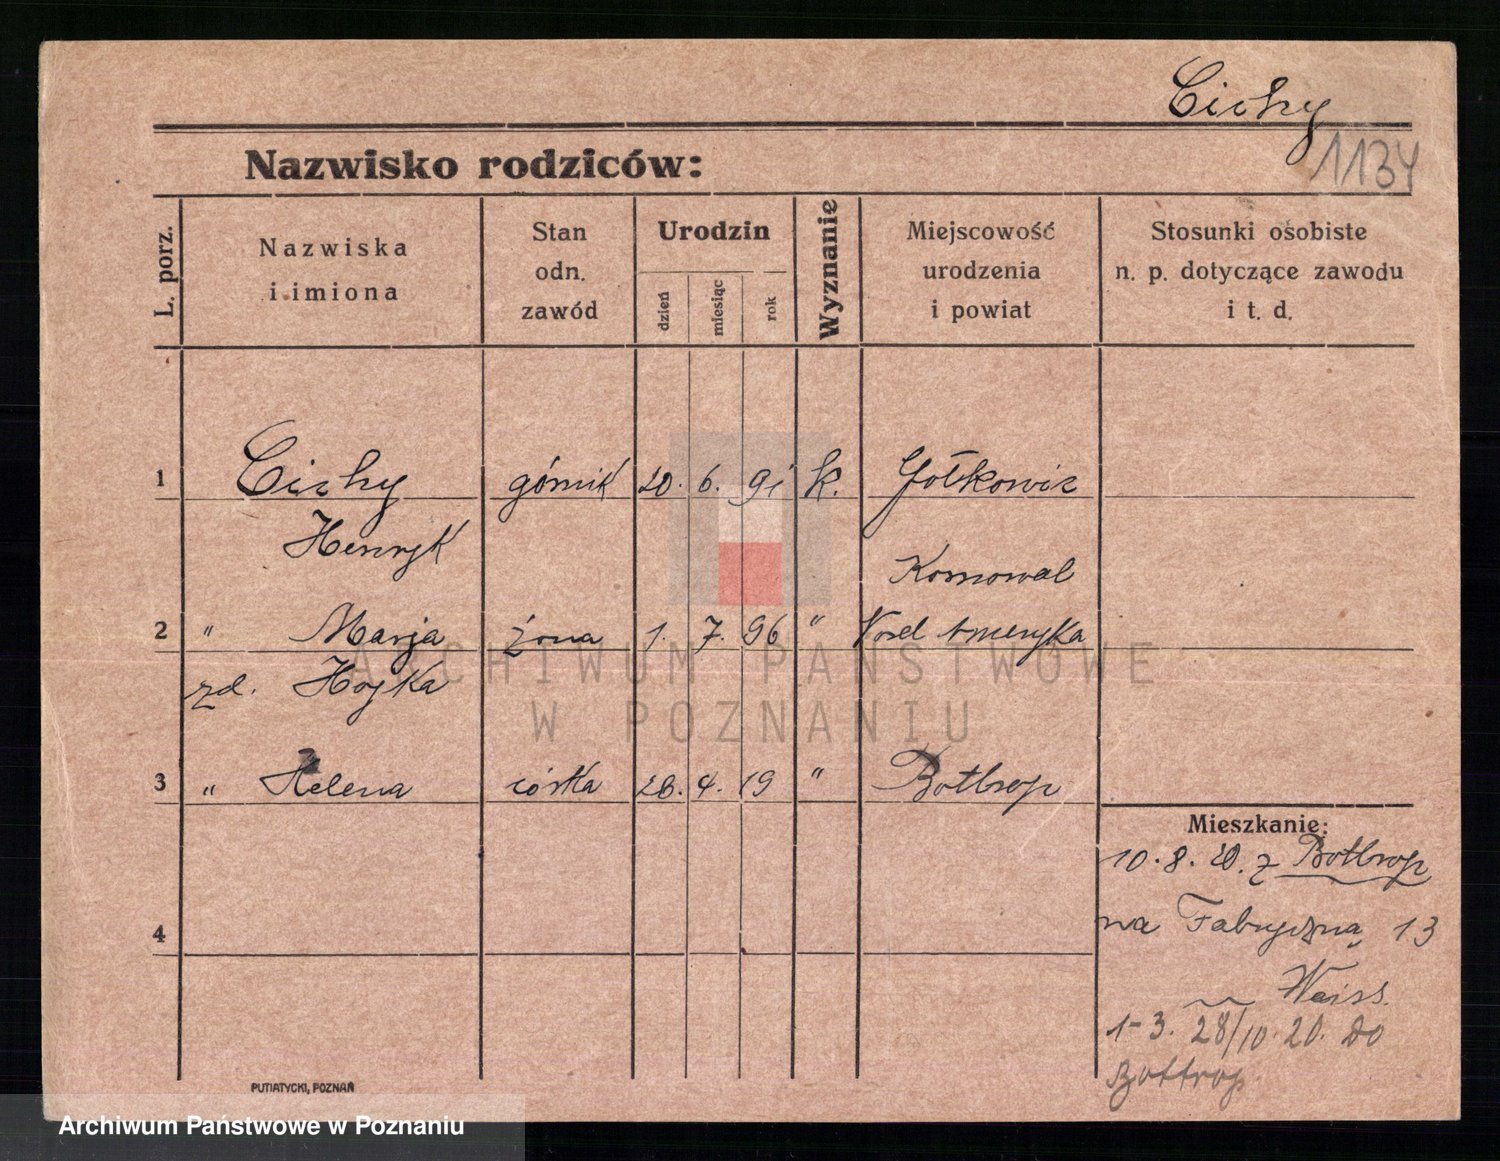 Cichy
1134
Nazwisko rodziców:
L. porz.
Nazwiska
i imiona
Stan
odn.
zawód
Urodzin
dzień
miesiąc
rok
Wyznanie
Miejscowość
urodzenia
i powiat
Stosunki osobiste
n. p. dotyczące zawodu
i t. d.
1 Cichy górnik 20. 6. 91 k. Gołkowic
Henryk
Komowal
2 " Marja żona 1. 7. 96 " Ameryka
zd. Hojka
3 " Helena córka 28. 4. 19 " Bottrop
Mieszkanie:
10. 8. 20. z Bottrop
na Fabryczną 13
4
Weiss.
1-3. 28/10. 20. do
Bottrop
PUTIATYCKI, POZNAŃ
ARCHIWUM PAŃSTWOWE
W POZNANIU
Archiwum Państwowe w Poznaniu